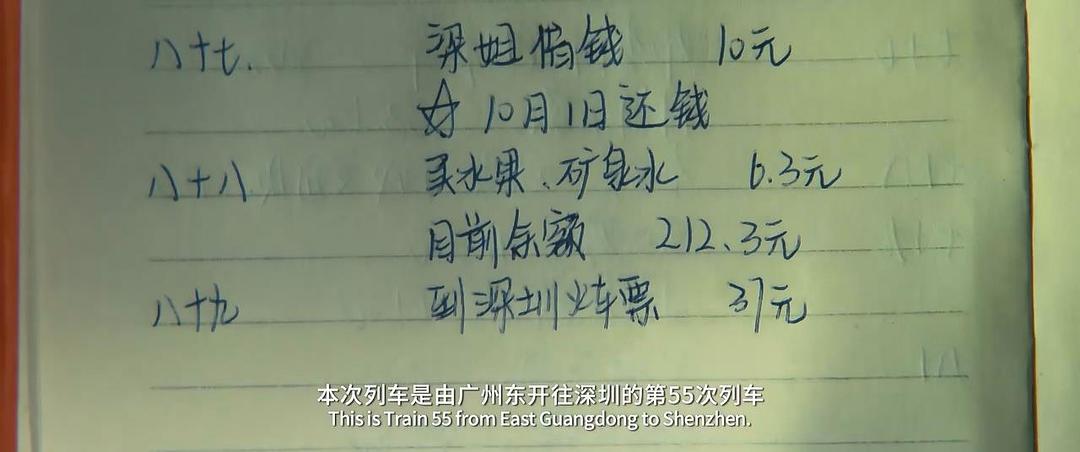 八十七. 深姐借钱 10元
☆10月1日还钱
八十八 买水果、矿泉水 6.3元
目前余额 212.3元
八十九 到深圳火车票 37元
本次列车是由广州东开往深圳的第55次列车
This is Train 55 from East Guangdong to Shenzhen.